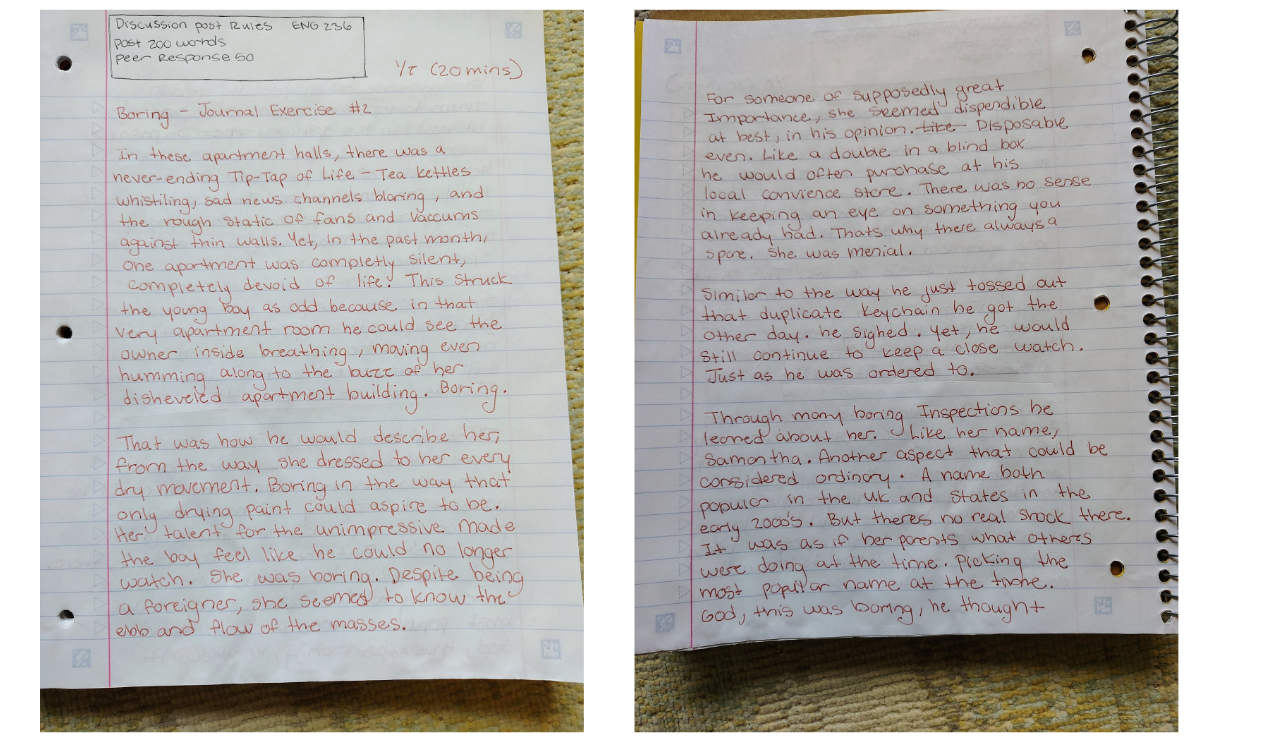 Discussion post Rules ENG 236
post 200 words
peer Response 50
(20 mins)
Boring - Journal Exercise #2
In these apartment halls, there was a
never-ending Tip-Tap of Life - Tea kettles
whistiling, sad news channels blaring, and
the rough static of fans and vaccums
against thin walls. Yet, in the past month,
one apartment was completly silent,
completely devoid of life. This struck
the young boy as odd because in that
very apartment room he could see the
owner inside breathing, moving even
humming along to the buzz of her
disheveled apartment building. Boring.
That was how he would describe her,
from the way she dressed to her every
dry movement. Boring in the way that
only drying paint could aspire to be.
Her talent for the unimpressive made
the boy feel like he could no longer
watch. She was boring. Despite being
a foreigner, she seemed to know the
ebb and flow of the masses.
For someone of supposedly great
Importance, she seemed dispendible
at best, in his opinion. Like Disposable
even. Like a double in a blind box
he would often purchase at his
local convience store. There was no sense
in keeping an eye on something you
already had. Thats why there always a
spare. She was menial.
Similar to the way he just tossed out
that duplicate keychain he got the
other day. he sighed. Yet, he would
still continue to keep a close watch.
Just as he was ordered to.
Through many boring Inspections he
learned about her. Like her name,
Samantha. Another aspect that could be
considered ordinary. A name both
popular in the UK and States in the
early 2000's. But theres no real shock there.
It was as if her parents what others
were doing at the time. Picking the
most popular name at the time.
God, this was boring, he thought